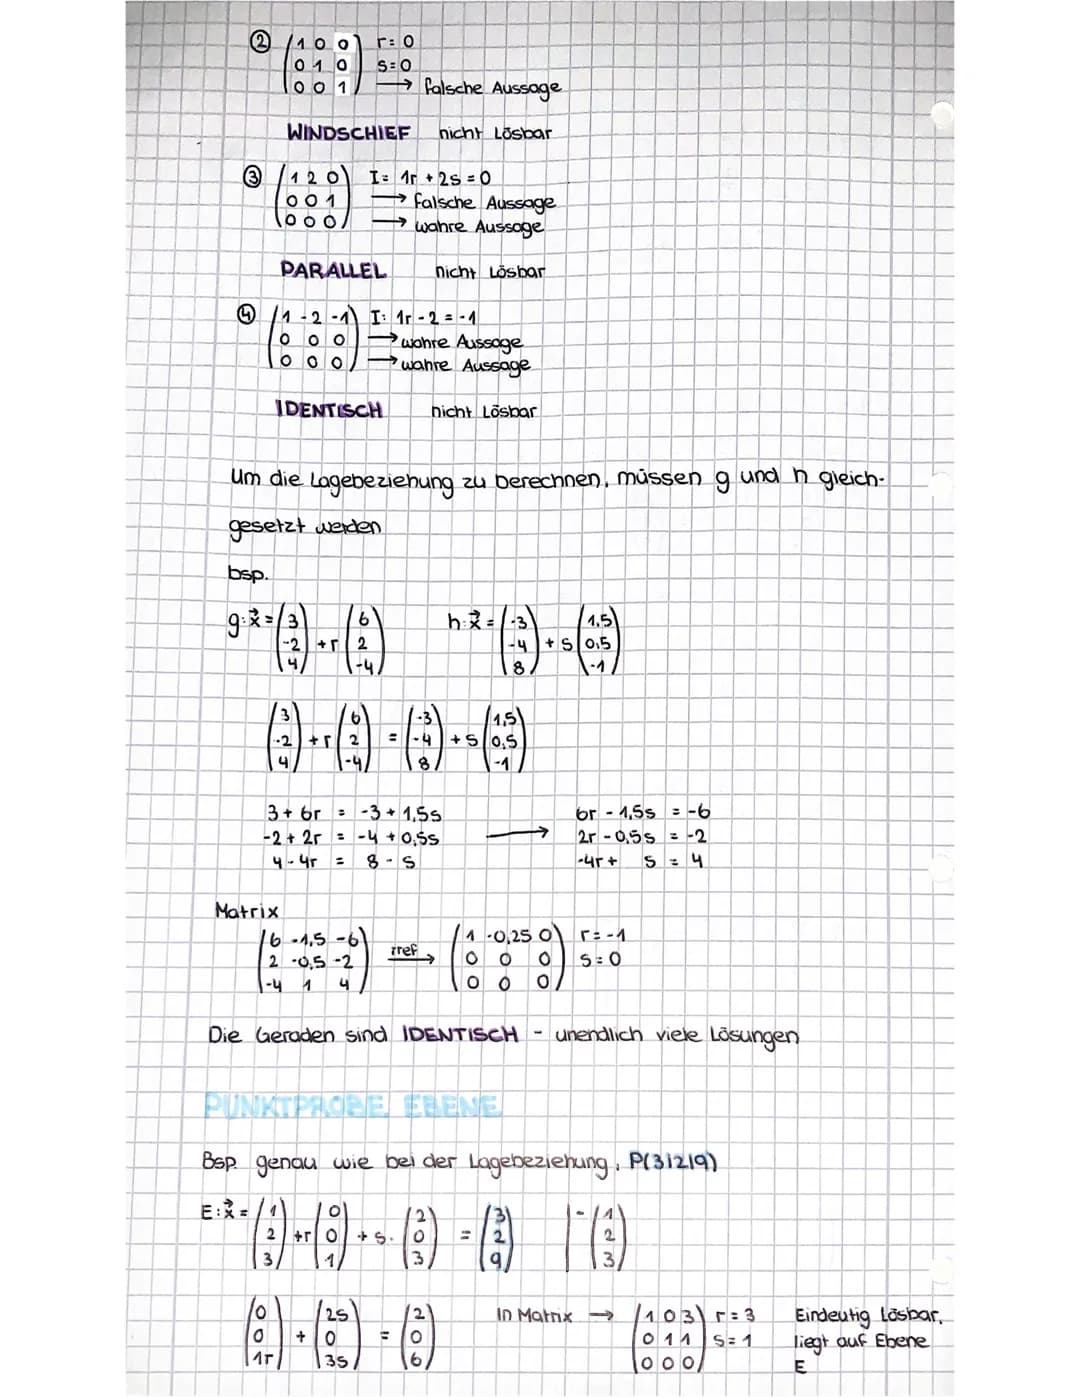 ② (1 0 0) r = 0
(0 1 0) s = 0
(0 0 1) → falsche Aussage
WINDSCHIEF nicht Lösbar
③ (1 2 0) I = 1r + 2s = 0
(0 0 1) → falsche Aussage
(0 0 0) → wahre Aussage
PARALLEL nicht Lösbar
④ (1 -2 -1) I: 1r - 2 = -1
(0 0 0) → wahre Aussage
(0 0 0) → wahre Aussage
IDENTISCH nicht Lösbar
Um die Lagebeziehung zu berechnen, müssen g und h gleich-
gesetzt werden
bsp.
g: x⃗ = (3 -2 4) + r (6 2 -4) h: x⃗ = (-3 -4 8) + s (1,5 0,5 -1)
(3 -2 4) + r (6 2 -4) = (-3 -4 8) + s (1,5 0,5 -1)
3 + 6r = -3 + 1,5s 6r - 1,5s = -6
-2 + 2r = -4 + 0,5s → 2r - 0,5s = -2
4 - 4r = 8 - s -4r + s = 4
Matrix
(6 -1,5 -6) (1 -0,25 0) r = -1
(2 -0,5 -2) rref → (0 0 0) s = 0
(-4 1 4) (0 0 0)
Die Geraden sind IDENTISCH - unendlich viele Lösungen
PUNKTPROBE EBENE
Bsp. genau wie bei der Lagebeziehung, P(3|2|9)
E: x⃗ = (1 2 3) + r (0 0 1) + s · (2 0 3) = (3 2 9) | - (1 2 3)
(0 0 1r) + (2s 0 3s) = (2 0 6) In Matrix → (1 0 3) r = 3 Eindeutig Lösbar,
(0 1 1) s = 1 liegt auf Ebene
(0 0 0) E